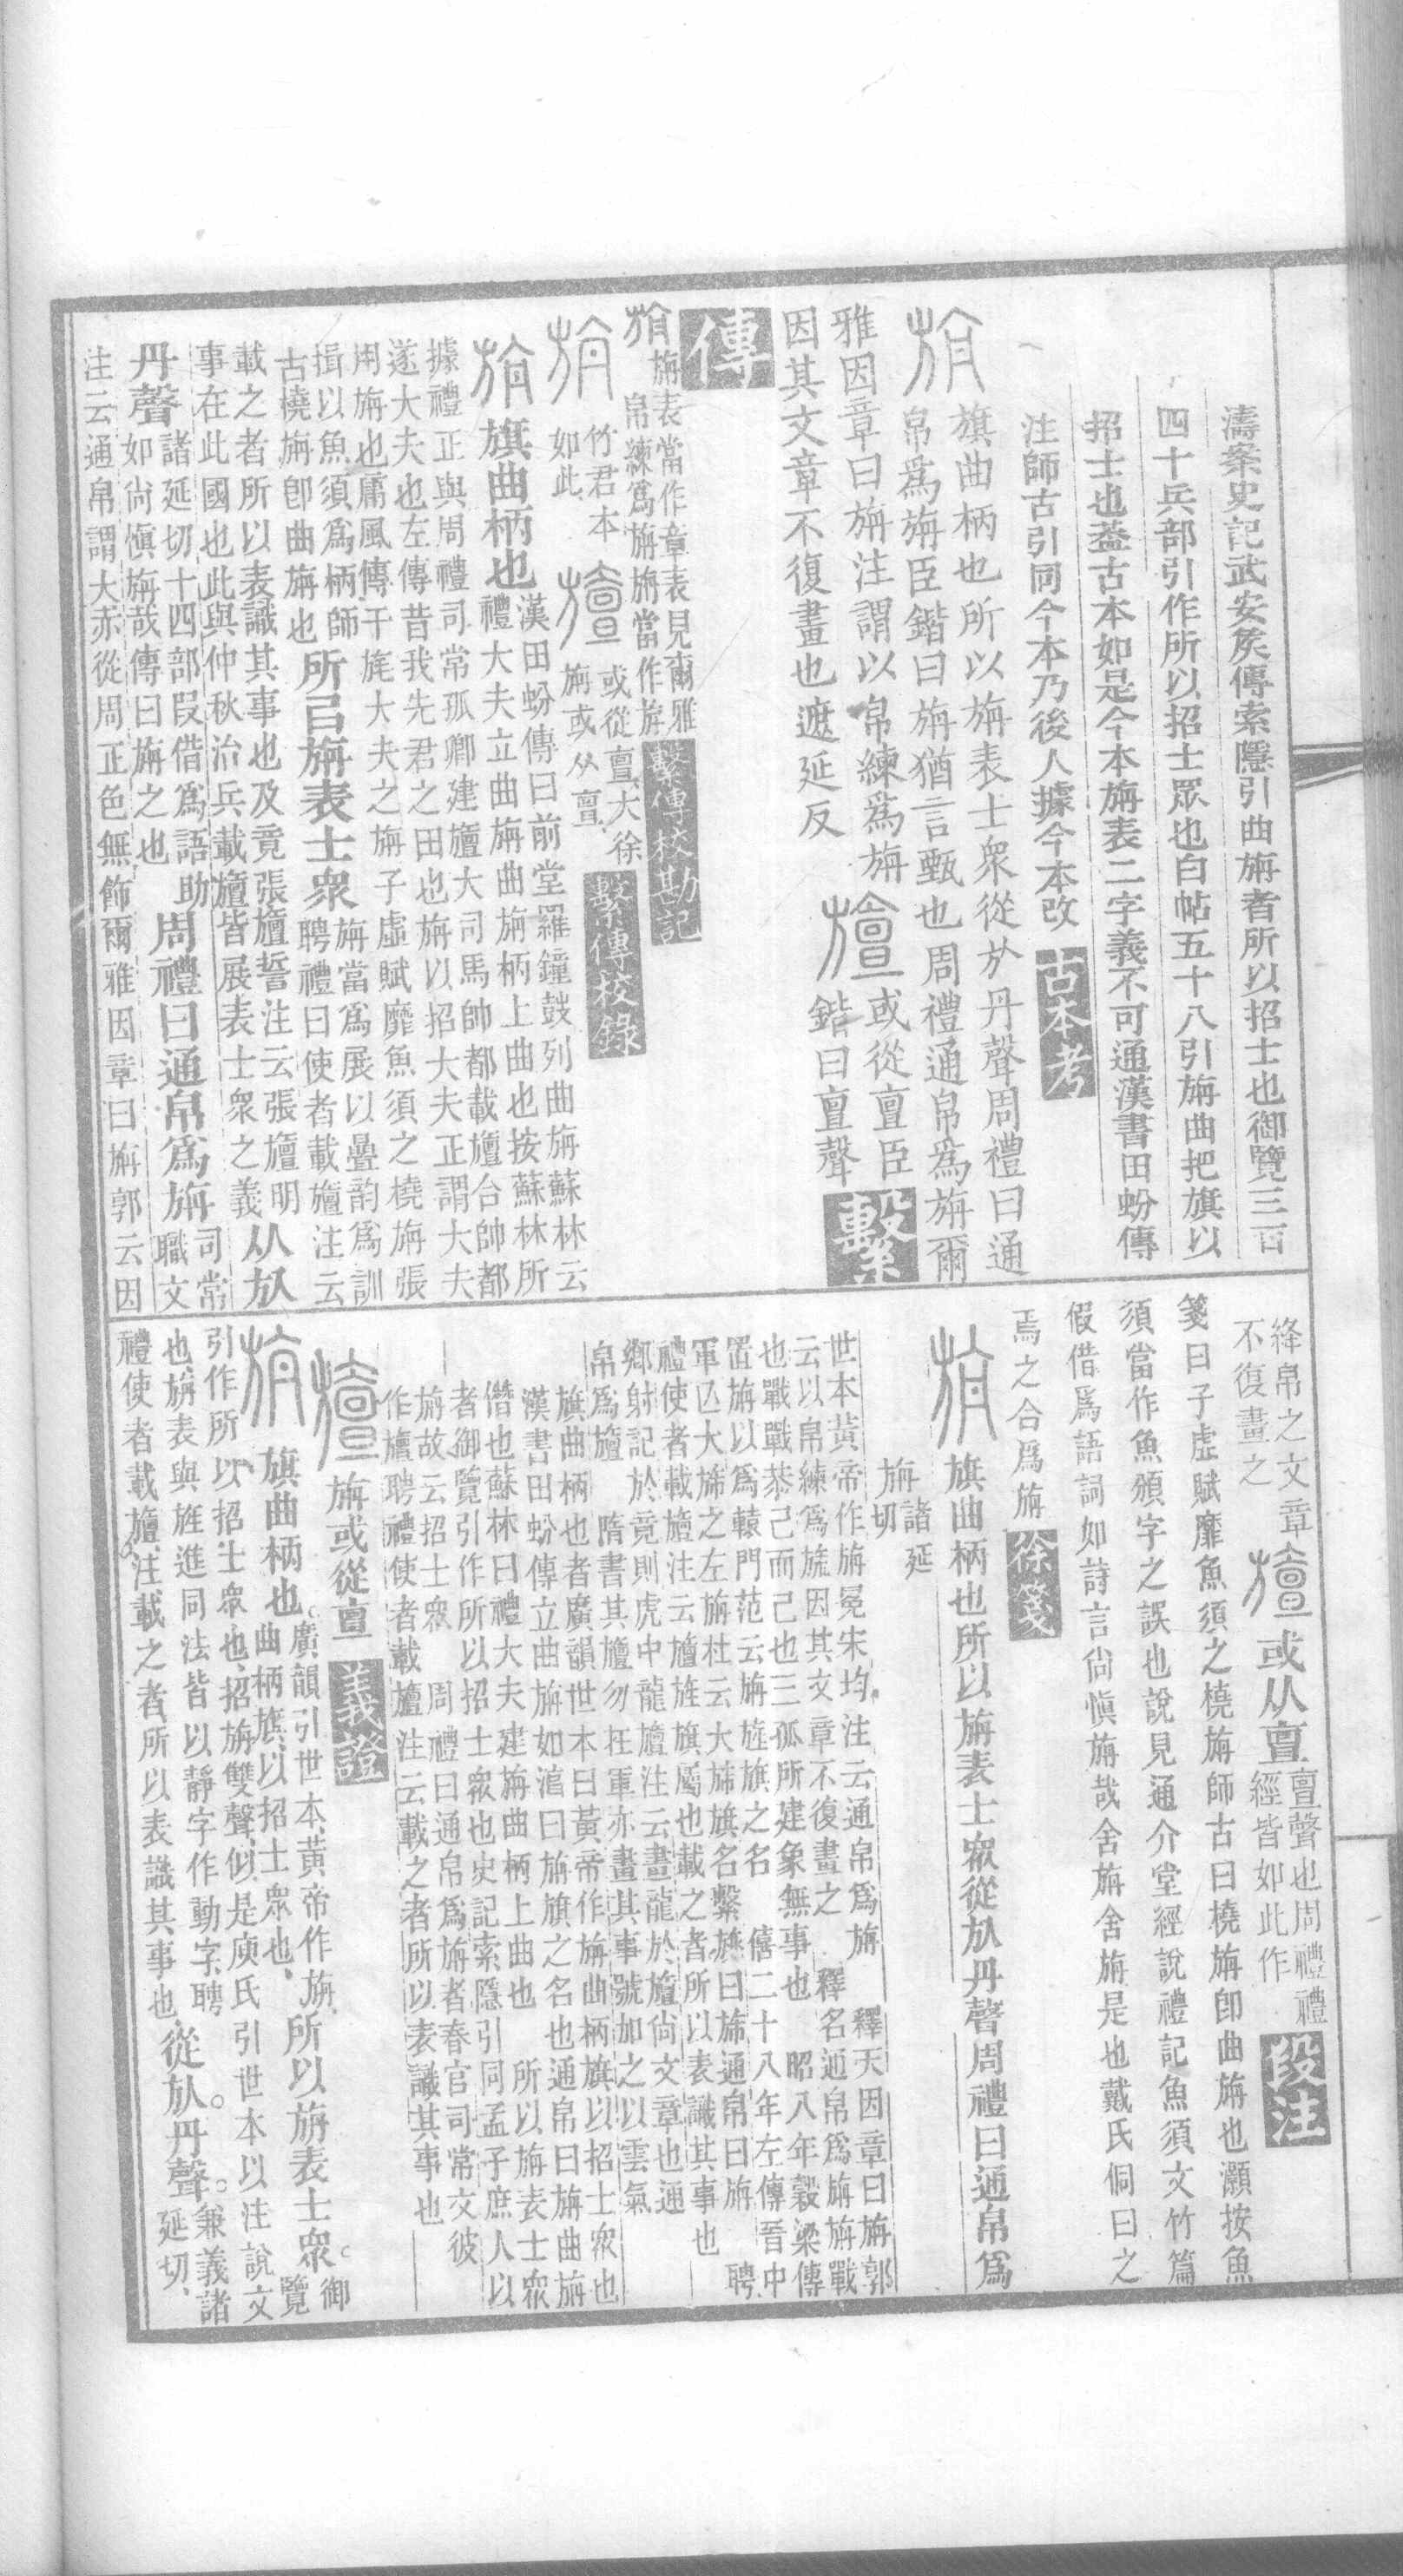 濤案史記武安矦傳索隱引曲旃者所以招士也御覽三百
四十兵部引作所以招士眾也白帖五十八引旃曲把旗以
招士也葢古本如是今本旃表二字義不可通漢書田蚡傳
注師古引同今本乃後人據今本改 古本考
旗曲柄也所以旃表士衆從㫃丹聲周禮曰通
帛爲旃臣鍇曰旃猶言甄也周禮通帛爲旃爾
雅因章曰旃注謂以帛練爲旃 或從亶臣
因其文章不復畫也遮延反 鍇曰亶聲 繫
傳
旃表當作章表見爾雅
帛練爲旃旃當作旂 繫傳校勘記
竹君本
如此 或從亶大徐
旃或从亶 繫傳校錄
旗曲柄也
漢田蚡傳曰前堂羅鐘鼓列曲旃蘇林云
禮大夫立曲旃曲旃柄上曲也按蘇林所
據禮正與周禮司常孤卿建旜大司馬帥都載旜合帥都
遂大夫也左傳昔我先君之田也旃以招大夫正謂大夫
用旃也鄘風傳干旄大夫之旃子虛賦靡魚須之橈旃張
揖以魚須爲柄師
古橈旃卽曲旃也 所㠯旃表士衆
旃當爲展以疊韵爲訓
聘禮曰使者載旜注云
載之者所以表識其事也及竟張旜誓注云張旜明
事在此國也此與仲秋治兵載旜皆展表士衆之義 从㫃
丹聲
諸延切十四部叚借爲語助
如尙愼旃哉傳曰旃之也 周禮曰通帛爲旃
司常
職文
注云通帛謂大赤從周正色無飾爾雅因章曰旃郭云因
絳帛之文章
不復畫之 或从亶
亶聲也周禮禮
經皆如此作 段注
箋曰子虛賦靡魚須之橈旃師古曰橈旃卽曲旃也灝按魚
須當作魚頒字之誤也說見通介堂經說禮記魚須文竹篇
假借爲語詞如詩言尙愼旃哉舍旃舍旃是也戴氏侗曰之
焉之合爲旃 徐箋
旗曲柄也所以旃表士衆從㫃丹聲周禮曰通帛爲
旃諸延
切
釋天因章曰旃郭
世本黃帝作旃宋均注云通帛爲旃 釋名通帛爲旃旃戰
云以帛練爲旒因其文章不復畫之
也戰戰恭己而已也三孤所建象無事也 昭八年穀梁傳
置旃以爲轅門范云旃旌旗之名 僖二十八年左傳晉中
軍亡大旆之左旃杜云大旆旗名繫旐曰旆通帛曰旃 聘
禮使者載旜注云旜旌旗屬也載之者所以表識其事也
鄉射記於竟則虎中龍旜注云畫龍於旜尙文章也通
帛爲旜 隋書其旜勿在軍亦畫其事號加之以雲氣
旗曲柄也者廣韻世本曰黃帝作旃曲柄旗以招士衆也
漢書田蚡傳立曲旃如淳曰旃旗之名也通帛曰旃曲旃
僭也蘇林曰禮大夫建旃曲柄上曲也 所以旃表士衆
者御覽引作所以招士衆也史記索隱引同孟子庶人以
旃故云招士衆 周禮曰通帛爲旃者春官司常文彼
作旜聘禮使者載旜注云載之者所以表識其事也
旃或從亶 義證
旗曲柄也
廣韻引世本黃帝作旃
曲柄旗以招士衆也 所以旃表士衆
御覽
引作所以招士衆也招旃雙聲似是庾氏引世本以注說文
也旃表與旌進同法皆以靜字作動字聘
禮使者載旜注載之者所以表識其事也 從㫃丹聲
兼義諸
延切